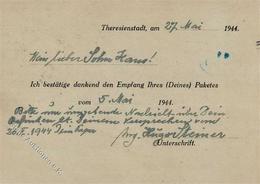 Theresienstadt, am 27. Mai 1944.
Mein lieber Sohn Hans!
Ich bestätige dankend den Empfang Ihres (Deines) Paketes
vom 5. Mai 1944.
Bitte um umgehende Nachricht über Dein
Befinden lt. Deinem Versprechen vom
26./I. 1944 Dein Papa
Ing. Hugo Steiner
(Unterschrift.)